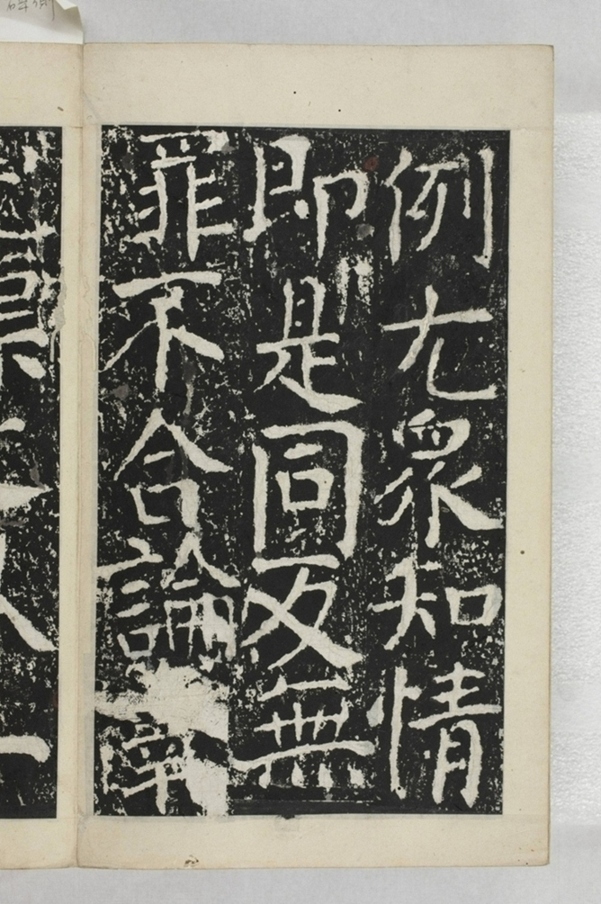 例尤衆知情
即是同反無
罪不合論